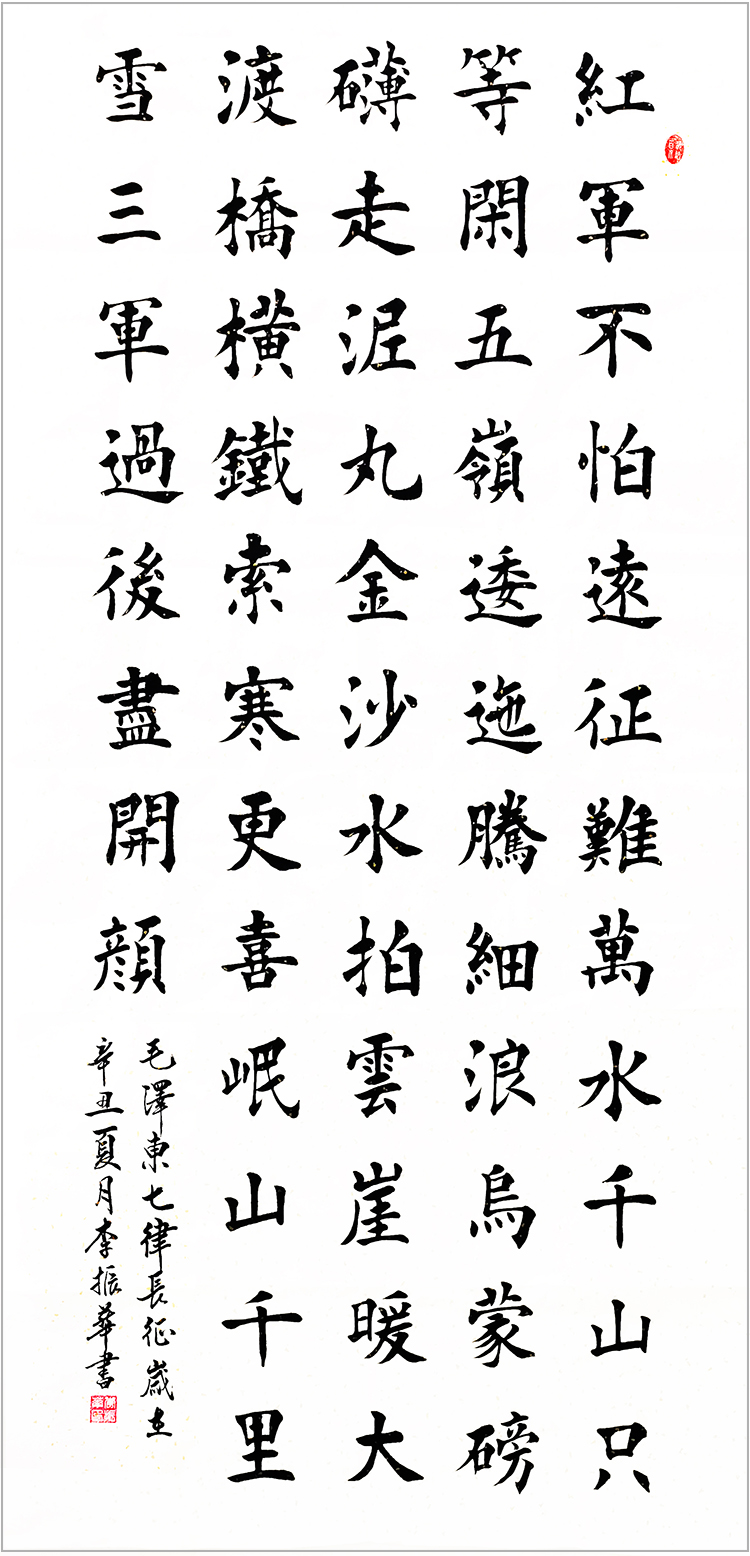 紅軍不怕遠征難萬水千山只
等閑五嶺逶迤騰細浪烏蒙磅
礴走泥丸金沙水拍雲崖暖大
渡橋橫鐵索寒更喜岷山千里
雪三軍過後盡開顏
毛澤東七律長征歲在
辛丑夏月李振華書